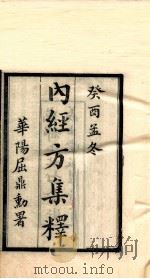 癸酉孟冬
內經方集釋
華陽屈鼎勳署
www.mtoou.info